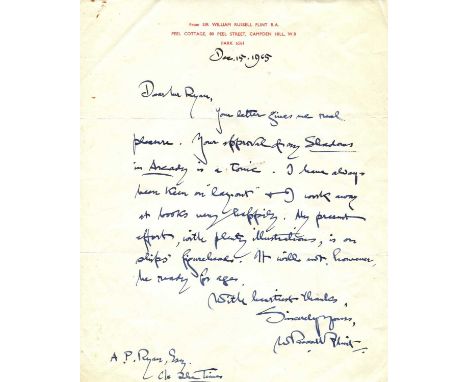 From SIR WILLIAM RUSSELL FLINT R.A.
PEEL COTTAGE, 80 PEEL STREET, CAMPDEN HILL, W.8
PARK
Dec. 15. 1965
Dear Mr Ryan,
Your letter gives me real
pleasure. Your approval of my Shadows
in Arcady is a tonic. I have always
been keen on "layout" & I work away
at books very happily. My present
effort, with plenty illustrations, is on
ships' figureheads. It will not, however,
be ready for ages.
With heartiest thanks,
Sincerely yours,
W Russell Flint
A. P. Ryan, Esq.
c/o The Times